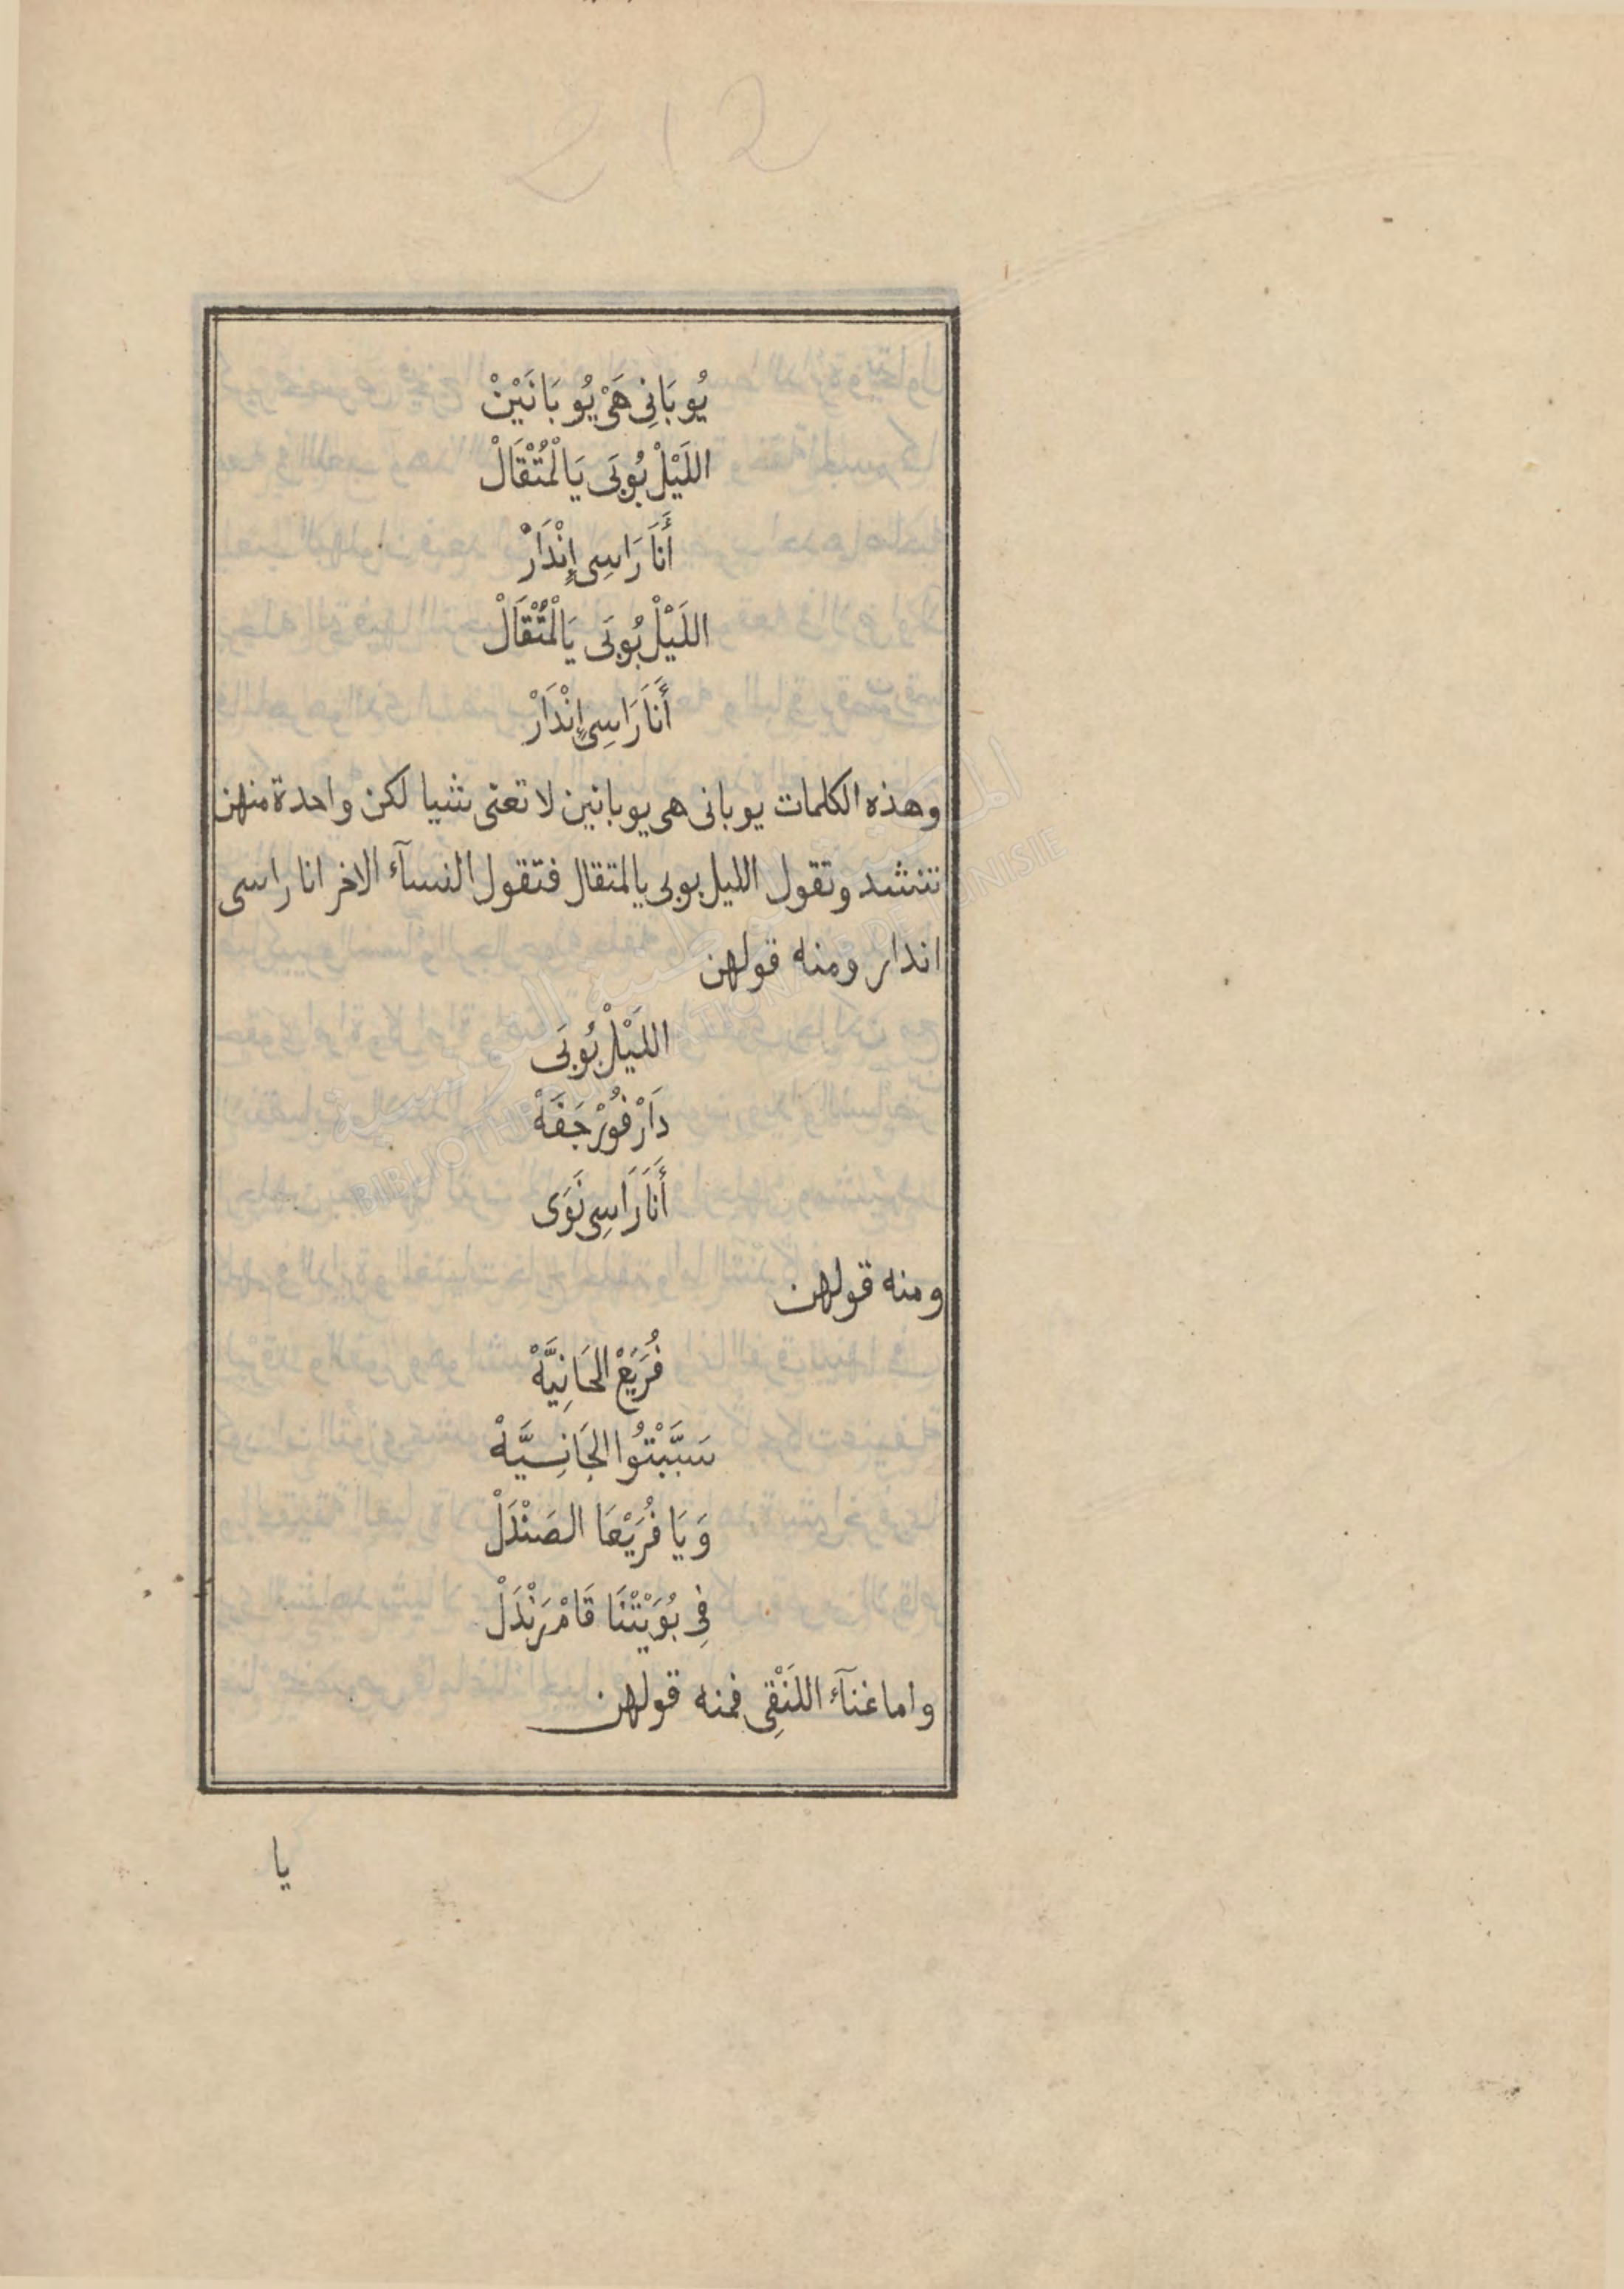 212
يُوبَانِى هَىْ يُو بَانَيْنْ
اللَيْلْ بُوبَى يَالْمُتْقَالْ
أَنَا رَاسِى إِنْدَارْ
اللَيْلْ بُوبَى يَالْمُتْقَالْ
أَنَا رَاسِى إِنْدَارْ
وهذه الكلمات يوبانى هى يوبانين لا تعنى شيا لكن واحدة منهن
تنشد وتقول الليل بوبى يالمتقال فتقول النسآء الاخر انا راسى
اندار ومنه قولهن
اللَيْلْ بُوبَى
دَارْ فُورْ جَفَهْ
أَنَا رَاسِى نَوَى
ومنه قولهن
فُرَيَعْ الحَانِيَّهْ
سَبَّبْتُوا الجَانِسِيَّهْ
وَ يَا فُرَيْعَا الصَنْدَلْ
فِى بُوَيْتْنَا قَامْ رَنْدَلْ
واما غنآء اللَنْقِى فمنه قولهن
يا
المكتبة الوطنية التونسية
BIBLIOTHEQUE NATIONALE DE TUNISIE